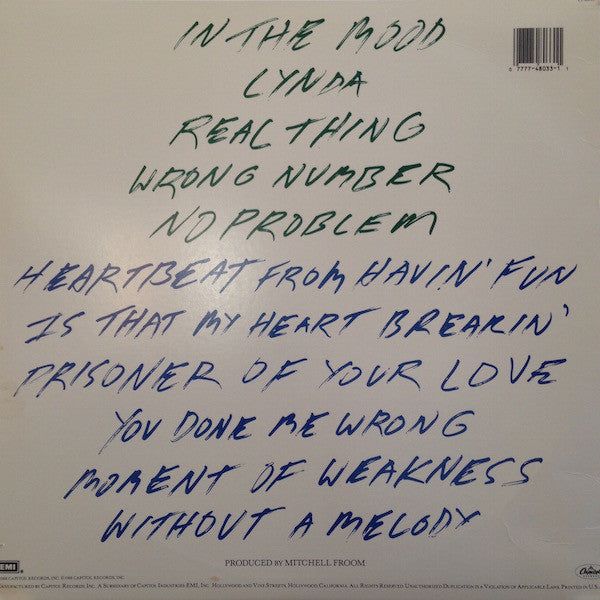 6 7777-48033-1 1
IN THE MOOD
LYNDA
REAL THING
WRONG NUMBER
NO PROBLEM
HEARTBEAT FROM HAVIN' FUN
IS THAT MY HEART BREAKIN'
PRISONER OF YOUR LOVE
YOU DONE ME WRONG
MOMENT OF WEAKNESS
WITHOUT A MELODY
PRODUCED BY MITCHELL FROOM
EMI
Capitol
1988 CAPITOL RECORDS, INC. ©1988 CAPITOL RECORDS, INC.
MANUFACTURED BY CAPITOL RECORDS, INC. A SUBSIDIARY OF CAPITOL INDUSTRIES-EMI, INC. HOLLYWOOD AND VINE STREETS, HOLLYWOOD, CALIFORNIA. ALL RIGHTS RESERVED. UNAUTHORIZED DUPLICATION IS A VIOLATION OF APPLICABLE LAWS. PRINTED IN U.S.